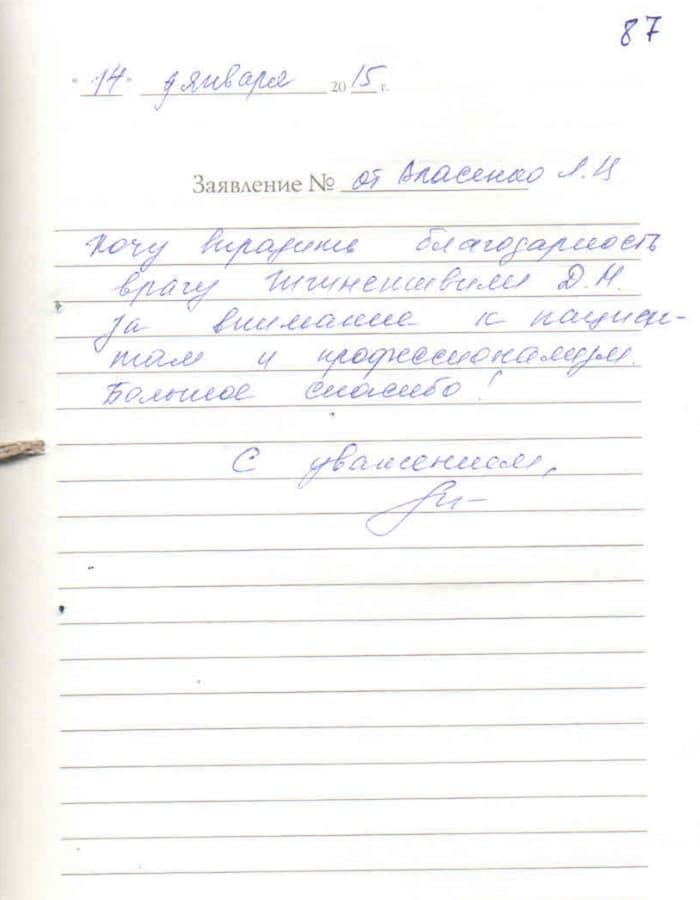 87
" 14 " января 2015 г.
Заявление № от Апасенко Л. Ц
Хочу выразить благодарность
врагу Д. Н.
за внимание к пациен-
там и профессионализм.
Большое спасибо!
С уважением,